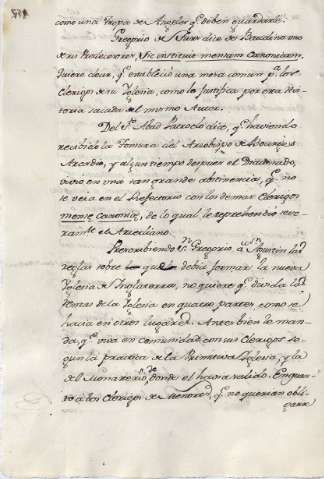 como una tropa de Angeles qe. deben guardarle.
Gregorio de Turs dice de Baudino uno
de sus Predecesores, Hic instituit mensam Canonicorum,
quiere decir, qe. estableció una mesa comun pa. los
Clerigos de su Iglesia, como lo justifica por otra His-
toria sacada del mismo Autor.
Del Sn. Abad Patroclo dice, qe. haviendo
recibido la Tonsura del Arzobispo de Bourges
Arcadio, y algun tiempo despues el Diaconado,
vivio en una tan grande abstinencia, qe. no
se veia en el Refectorio con los demas Clerigos
mensæ canonicæ, de lo qual le reprehendio seve-
ramte. el Arcediano.
Prescribiendo Sn. Gregorio a Sn. Agustin las
reglas sobre que debia formar la nueva
Iglesia de Inglaterra, no quiere qe. divida las
rentas de la Iglesia en quatro partes como se
hacia en otros lugares. Antes bien le man-
da, qe. viva en Comunidad con sus Clerigos se-
gun la practica de la Primitiva Iglesia, y la
del Monasterio, de donde el havia salido. En quan-
to a los Clerigos de Menores, qe. no querian obli-
garse